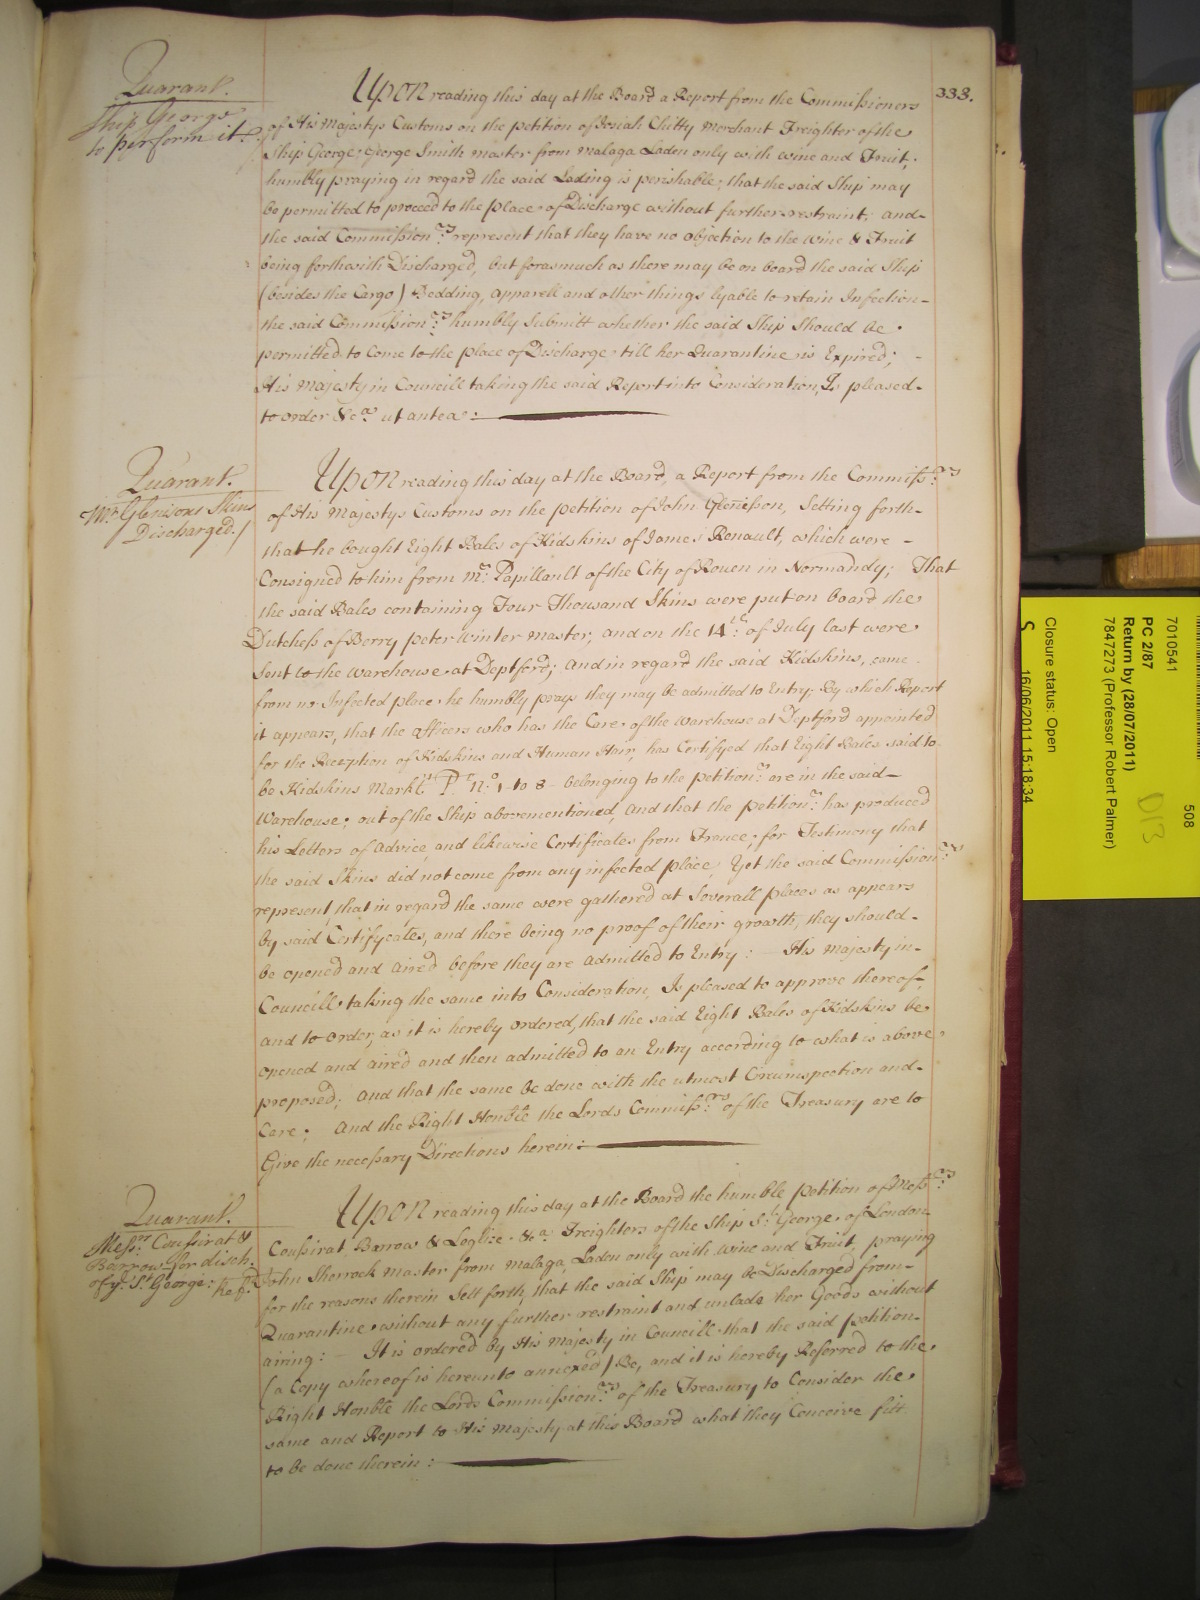 333.
Quarant.
Ship George
to perform it.
Upon reading this day at the Board a Report from the Commissioners
of His Majestys Customs on the petition of Josiah Chitty Merchant Freighter of the
Ship George, George Smith Master from Malaga Laden only with wine and Fruit,
humbly praying in regard the said Lading is perishable, that the said Ship may
be permitted to proceed to the place of Discharge without further restraint; and
the said Commission.rs represent that they have no objection to the wine & Fruit
being forthwith Discharged, but forasmuch as there may be on board the said Ship
(besides the Cargo) Bedding, apparell and other things lyable to retain Infection
the said Commission.rs humbly Submitt whether the said Ship Should be
permitted to Come to the place of Discharge till her Quarantine is Expired;
His Majesty in Councill taking the said Report into Consideration, Is pleased
to order &ca. ut antea:
Quarant.
Mr. Glenisons Skins
Discharged./
Upon reading this day at the Board, a Report from the Commiss.rs
of His Majestys Customs on the petition of John Glenisson, Setting forth
that he bought Eight Bales of Kidskins of James Renault, which were
Consigned to him from Mr. Papillault of the City of Rouen in Normandy; That
the said Bales containing Four Thousand Skins were put on board the
Dutchess of Berry Peter Winter Master; and on the 14th. of July last were
sent to the warehouse at Deptford; and in regard the said Kidskins, came
from no Infected place he humbly prays they may be admitted to Entry; By which Report
it appears, that the officers who has the Care of the warehouse at Deptford appointed
for the Reception of Kidskins and Human Hair, has Certifyed that Eight Bales said to
be Kidskins Markt. P. No. 1 to 8 belonging to the petition.r are in the said
warehouse; out of the Ship abovementioned, and that the petition.r has produced
his Letters of advice, and likewise Certificates from France, for Testimony that
the said Skins did not come from any infected place, Yet the said Commission.rs
represent, that in regard the same were gathered at Severall places as appears
by said Certifycates, and there being no proof of their growth, they should
be opened and aired before they are admitted to Entry: His Majesty in
Councill taking the same into Consideration, Is pleased to approve thereof,
and to order, as it is hereby ordered, that the said Eight Bales of Kidskins be
opened and aired and then admitted to an Entry according to what is above
proposed; and that the same be done with the utmost Circumspection and
Care; And the Right Honble the Lords Commiss.rs of the Treasury are to
Give the necessary Directions herein:
Quarant.
Messrs. Coussirat &
Barrow for disch.
of ye. St. George: Refd.
Upon reading this day at the Board the humble petition of Mess.rs
Coussirat, Barrow & Loglize &a. Freighters of the Ship St. George of London
John Sherrock Master from Malaga, Laden only with wine and Fruit, praying
for the reasons therein Sett forth, that the said Ship may be Discharged from
Quarantine without any further restraint and unlade her Goods without
airing: It is ordered by His Majesty in Councill that the said petition
(a Copy whereof is hereunto annexed) Be, and it is hereby Referred to the
Right Honble the Lords Commission.rs of the Treasury to Consider the
same and Report to His Majesty at this Board what they Conceive fitt
to be done therein:
7010541
508
PC 2/87
Return by (28/07/2011)
7847273 (Professor Robert Palmer)
D13
Closure status: Open
S
16/06/2011 15:18:34